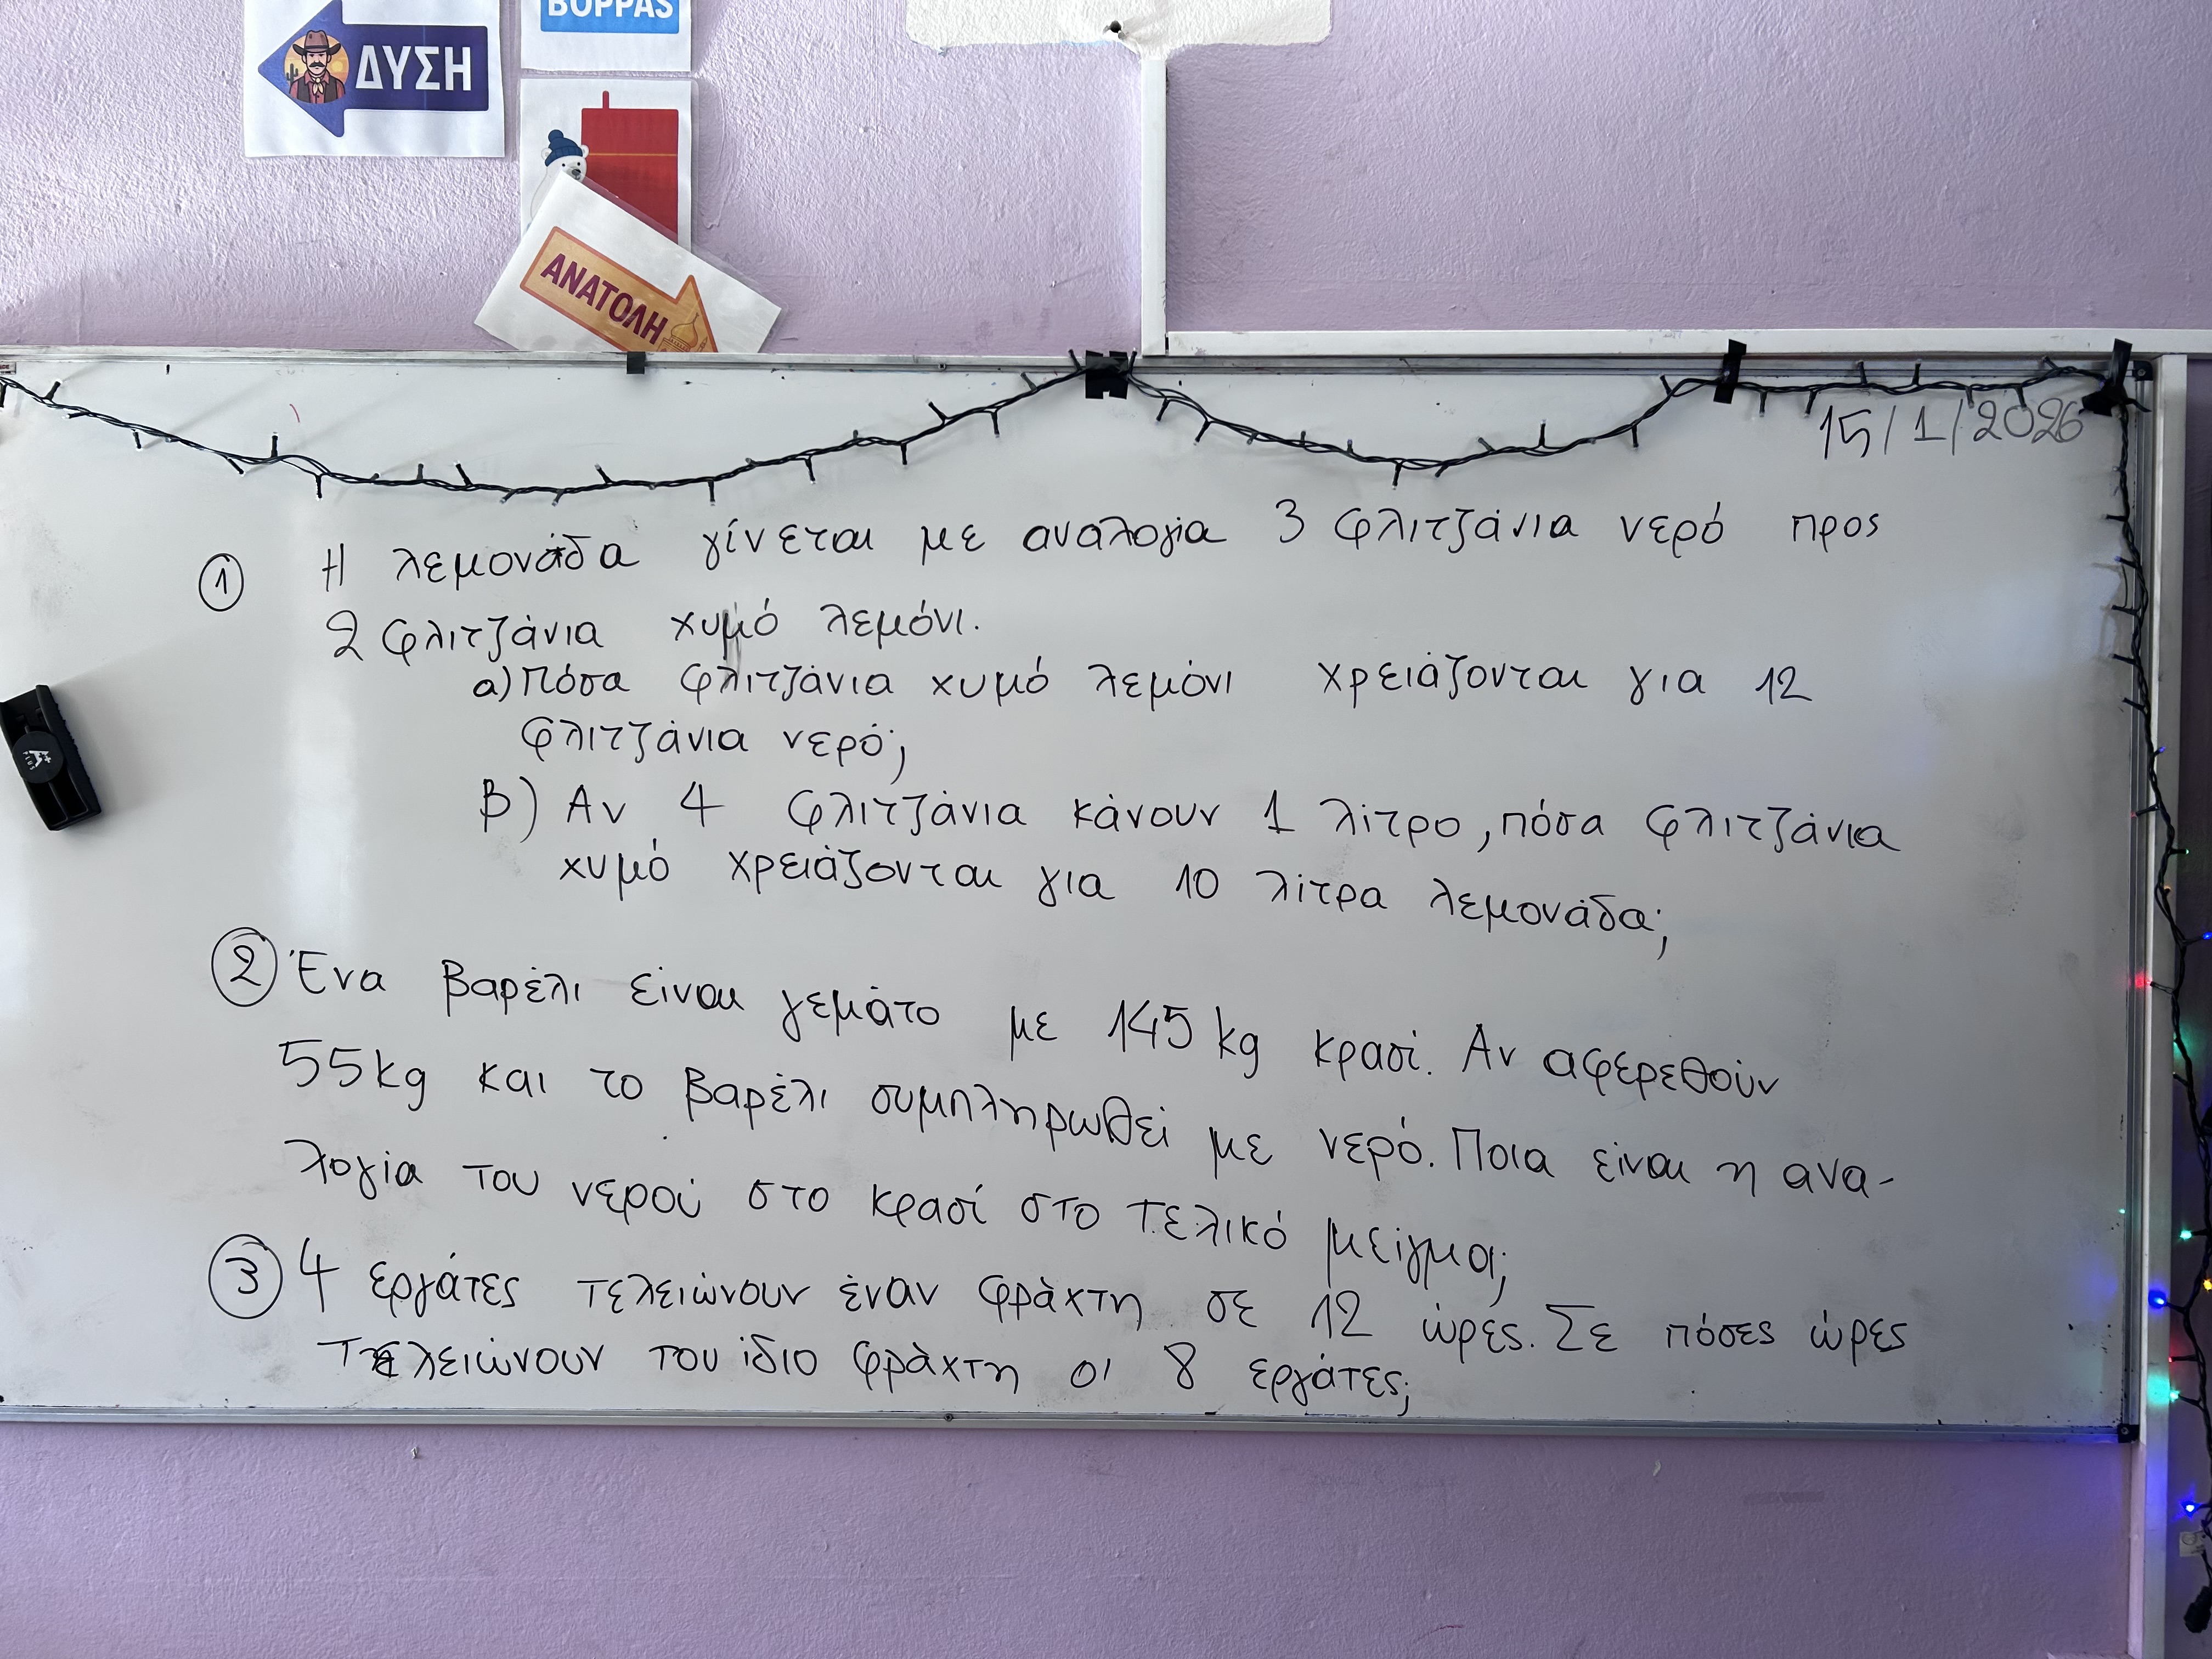 ΒΟΡΡΑΣ
ΔΥΣΗ
ΑΝΑΤΟΛΗ
15/1/2026
① Η λεμονάδα γίνεται με αναλογία 3 φλιτζάνια νερό προς
2 φλιτζάνια χυμό λεμόνι.
α) Πόσα φλιτζάνια χυμό λεμόνι χρειάζονται για 12
φλιτζάνια νερό;
β) Αν 4 φλιτζάνια κάνουν 1 λίτρο, πόσα φλιτζάνια
χυμό χρειάζονται για 10 λίτρα λεμονάδα;
② Ένα βαρέλι είναι γεμάτο με 145 kg κρασί. Αν αφερεθούν
55kg και το βαρέλι συμπληρωθεί με νερό. Ποια είναι η ανα-
λογία του νερού στο κρασί στο τελικό μείγμα;
③ 4 εργάτες τελειώνουν έναν φράχτη σε 12 ώρες. Σε πόσες ώρες
τελειώνουν του ίδιο φράχτη οι 8 εργάτες;